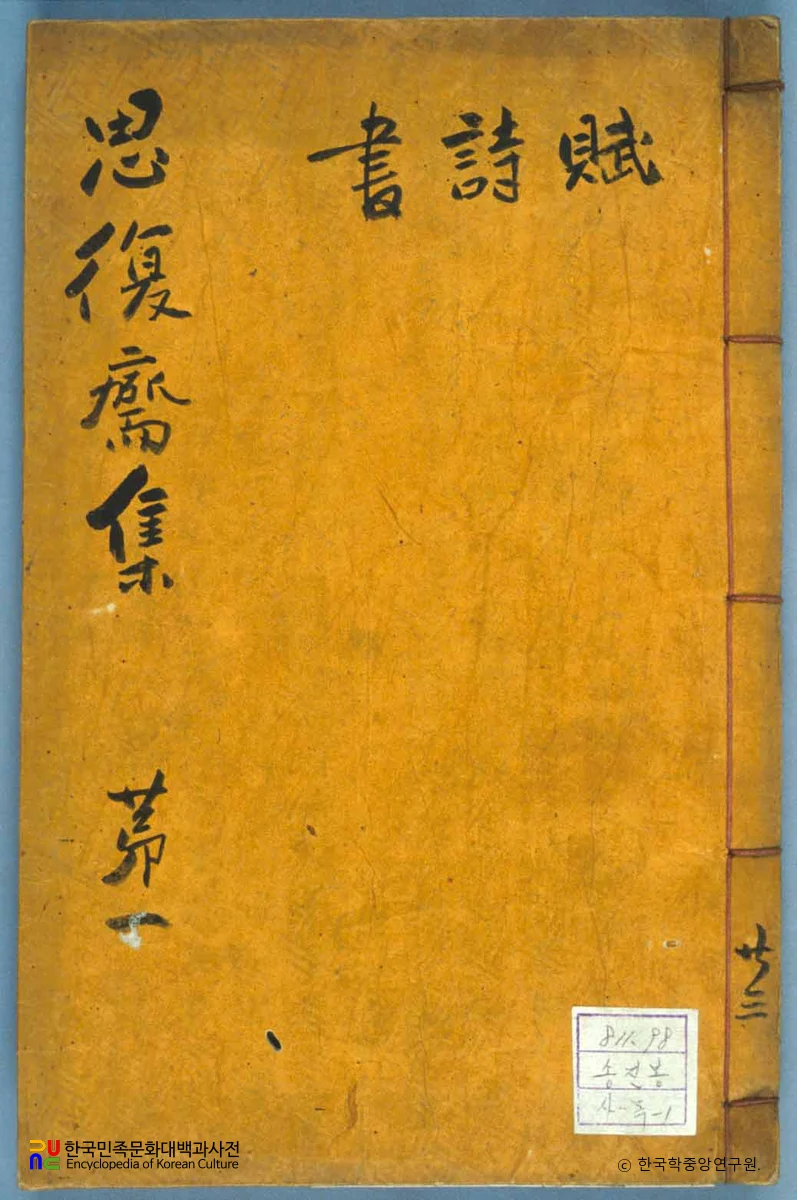 賦
詩
書
思復齋集 第一
共三
811.98
송진봉
한국민족문화대백과사전
Encyclopedia of Korean Culture
© 한국학중앙연구원.